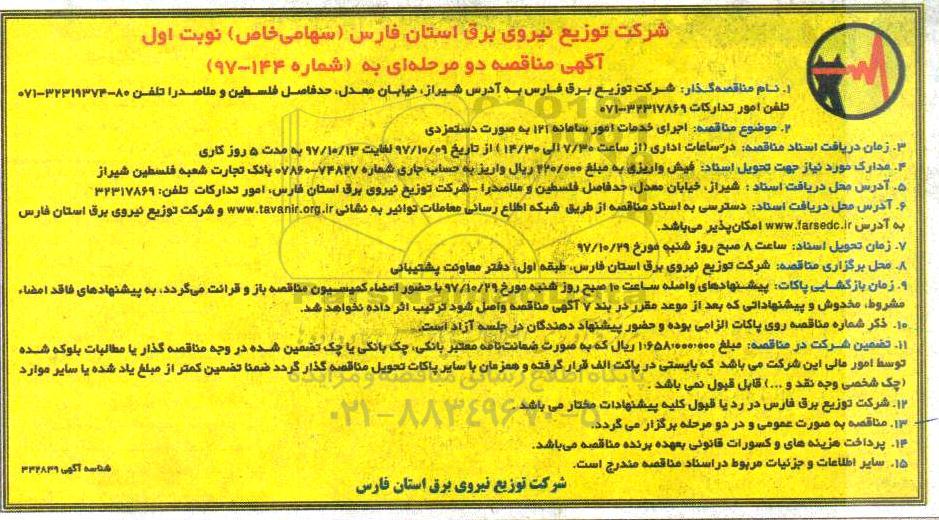 شرکت توزیع نیروی برق استان فارس (سهامی‌خاص) نوبت اول
آگهی مناقصه دو مرحله‌ای به (شماره ۱۴۴-۹۷)
۱. نـام مناقصه‌گـذار: شرکت توزیـع بـرق فـارس بـه آدرس شیـراز، خیابـان معـدل، حدفاصل فلسطین و ملاصـدرا تلفـن ۸۰-۳۲۳۱۹۳۷۴-۰۷۱
تلفن امور تدارکات ۳۲۳۱۷۸۶۹-۰۷۱
۲. موضوع مناقصه: اجرای خدمات امور سامانه ۱۲۱ به صورت دستمزدی
۳. زمان دریافت اسناد مناقصه: در ساعات اداری (از ساعت ۷/۳۰ الی ۱۴/۳۰ ) از تاریخ ۹۷/۱۰/۰۹ لغایت ۹۷/۱۰/۱۳ به مدت ۵ روز کاری
۴. مدارک مورد نیاز جهت تحویل اسناد: فیش واریزی به مبلغ ۲۲۰/۰۰۰ ریال واریز به حساب جاری شماره ۷۴۸۲۷-۰۷۸۶۰ بانک تجارت شعبه فلسطین شیراز
۵. آدرس محل دریافت اسناد : شیراز، خیابان معدل، حدفاصل فلسطین و ملاصدرا -شرکت توزیع نیروی برق استان فارس، امور تدارکات تلفن: ۳۲۳۱۷۸۶۹
۶. آدرس محل دریافت اسناد: دسترسی به اسناد مناقصه از طریق شبکه اطلاع رسانی معاملات توانیر به نشانی www.tavanir.org.ir و شرکت توزیع نیروی برق استان فارس
به آدرس www.farsedc.ir امکان‌پذیر می‌باشد.
۷. زمان تحویل اسناد: ساعت ۸ صبح روز شنبه مورخ ۹۷/۱۰/۲۹
۸. محل برگزاری مناقصه: شرکت توزیع نیروی برق استان فارس، طبقه اول، دفتر معاونت پشتیبانی
۹. زمان بازگشـایی پاکات: پیشـنهادهای واصله سـاعت ۱۰ صبح روز شنبه مورخ ۹۷/۱۰/۲۹ با حضور اعضاء کمیسـیون مناقصه باز و قرائت می‌گردد، به پیشنهادهای فاقد امضاء
مشروط، مخدوش و پیشنهاداتی که بعد از موعد مقرر در بند ۷ آگهی مناقصه واصل شود ترتیب اثر داده نخواهد شد.
۱۰. ذکر شماره مناقصه روی پاکات الزامی بوده و حضور پیشنهاد دهندگان در جلسه آزاد است.
۱۱. تضمین شـرکت در مناقصه: مبلغ ۱،۶۵۸،۰۰۰،۰۰۰ ریال که به صورت ضمانت‌نامه معتبر بانکی، چک بانکی یا چک تضمین شـده در وجه مناقصه گذار یا مطالبات بلوکه شـده
توسط امور مالی این شرکت می باشد که بایستی در پاکت الف قرار گرفته و همزمان با سایر پاکات تحویل مناقصه گذار گردد ضمنا تضمین کمتر از مبلغ یاد شده یا سایر موارد
(چک شخصی وجه نقد و ...) قابل قبول نمی باشد .
۱۲. شرکت توزیع برق فارس در رد یا قبول کلیه پیشنهادات مختار می باشد .
۱۳. مناقصه به صورت عمومی و در دو مرحله برگزار می گردد.
۱۴. پرداخت هزینه های و کسورات قانونی بعهده برنده مناقصه می‌باشد.
۱۵. سایر اطلاعات و جزئیات مربوط در اسناد مناقصه مندرج است.
شناسه آگهی ۳۳۲۸۳۹
شرکت توزیع نیروی برق استان فارس
پایگاه اطلاع رسانی مناقصه و مزایده
۰۲۱-۸۸۳۴۹۶۷۰-۵